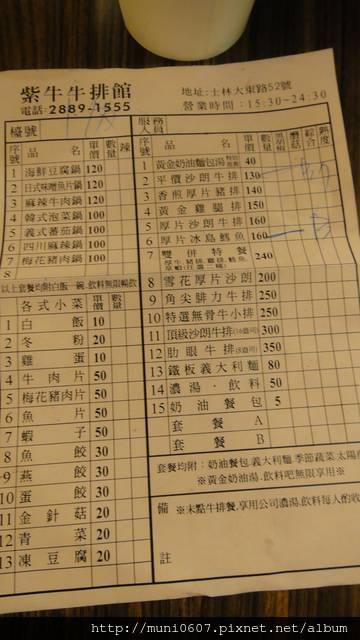 紫牛牛排館
電話:2889-1555
地址:士林大東路52號
營業時間:15:30~24:30
檯號
服務人員
序號 品名 單價 數量 辣
1 海鮮豆腐鍋 120
2 日式味噌魚片鍋 120
3 麻辣牛肉鍋 120
4 韓式泡菜鍋 100
5 義式蕃茄鍋 100
6 四川麻辣鍋 100
7 梅花豬肉鍋 100
8
以上套餐均附白飯一碗.飲料無限暢飲
各式小菜 單價 數量
1 白飯 10
2 冬粉 20
3 雞蛋 10
4 牛肉片 50
5 梅花豬肉片 50
6 魚片 50
7 蝦子 50
8 魚餃 30
9 燕餃 30
10 蛋餃 30
11 金針菇 20
12 青菜 20
13 凍豆腐 20
序號 品名 單價 數量 黑胡椒 蘑菇 綜合 熟度
1 黃金奶油麵包湯 40
2 平價沙朗牛排 130
3 香煎厚片豬排 140
4 黃金雞腿排 150
5 厚片沙朗牛排 160
6 厚片冰島鱈魚 160
7 雙併特餐 240
8 雪花厚片沙朗 200
9 角尖腓力牛排 250
10 特選無骨牛小排 250
11 頂級沙朗牛排(16盎司) 300
12 肋眼牛排(8盎司) 350
13 鐵板義大利麵 80
14 濃湯.飲料 50
15 奶油餐包 5
套餐 A
套餐 B
套餐均附:奶油餐包.義大利麵.季節蔬菜.太陽
※黃金奶油湯.飲料吧無限享用※
備註
※未點牛排餐.享用公司濃湯.飲料每人酌收
http://muni0607.pixnet.net/album